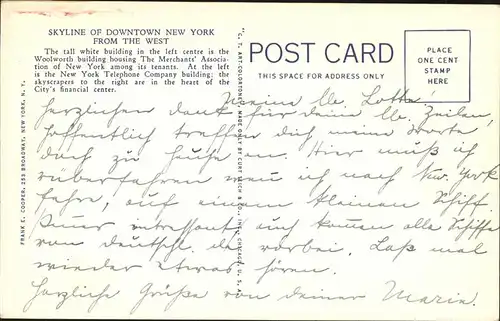 SKYLINE OF DOWNTOWN NEW YORK
FROM THE WEST
The tall white building in the left centre is the
Woolworth building housing The Merchants' Associa-
tion of New York among its tenants. At the left
is the New York Telephone Company building; the
skyscrapers to the right are in the heart of the
City's financial center.
POST CARD
THIS SPACE FOR ADDRESS ONLY
PLACE
ONE CENT
STAMP
HERE
FRANK E. COOPER, 293 BROADWAY, NEW YORK, N. Y.
"C. T. ART-COLORTONE" MADE ONLY BY CURT TEICH & CO., INC., CHICAGO, U. S. A.
Meine lb. Lotte
Herzlichen Dank für deine lb. Zeilen,
hoffentlich treffen dich meine Worte
doch zu Hause an. Hier muß ich
rüberfahren wenn ich nach New York
fahre, auf einem kleinen Schiff
interessant, auch kommen alle Schiffe
von Deutschl. da vorbei. Laß mal
wieder etwas hören.
Herzliche Grüße von deiner Marie.